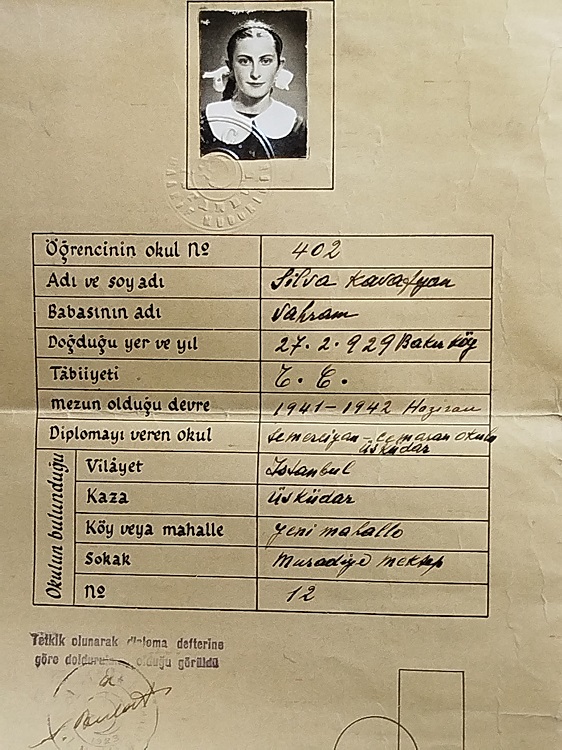 Öğrencinin okul Nº 402
Adı ve soyadı Silva Kavafyan
Babasının adı Vahram
Doğduğu yer ve yıl 27.2.929 Bakırköy
Tâbiiyeti T. C.
mezun olduğu devre 1941-1942 Haziran
Diplomayı veren okul Semerciyan-Cemaran okulu
Üsküdar
Okulun bulunduğu
Vilâyet Istanbul
Kaza Üsküdar
Köy veya mahalle Yeni mahalle
Sokak Muradiye mektep
Nº 12
Tetkik olunarak diploma defterine
göre olduğu görüldü